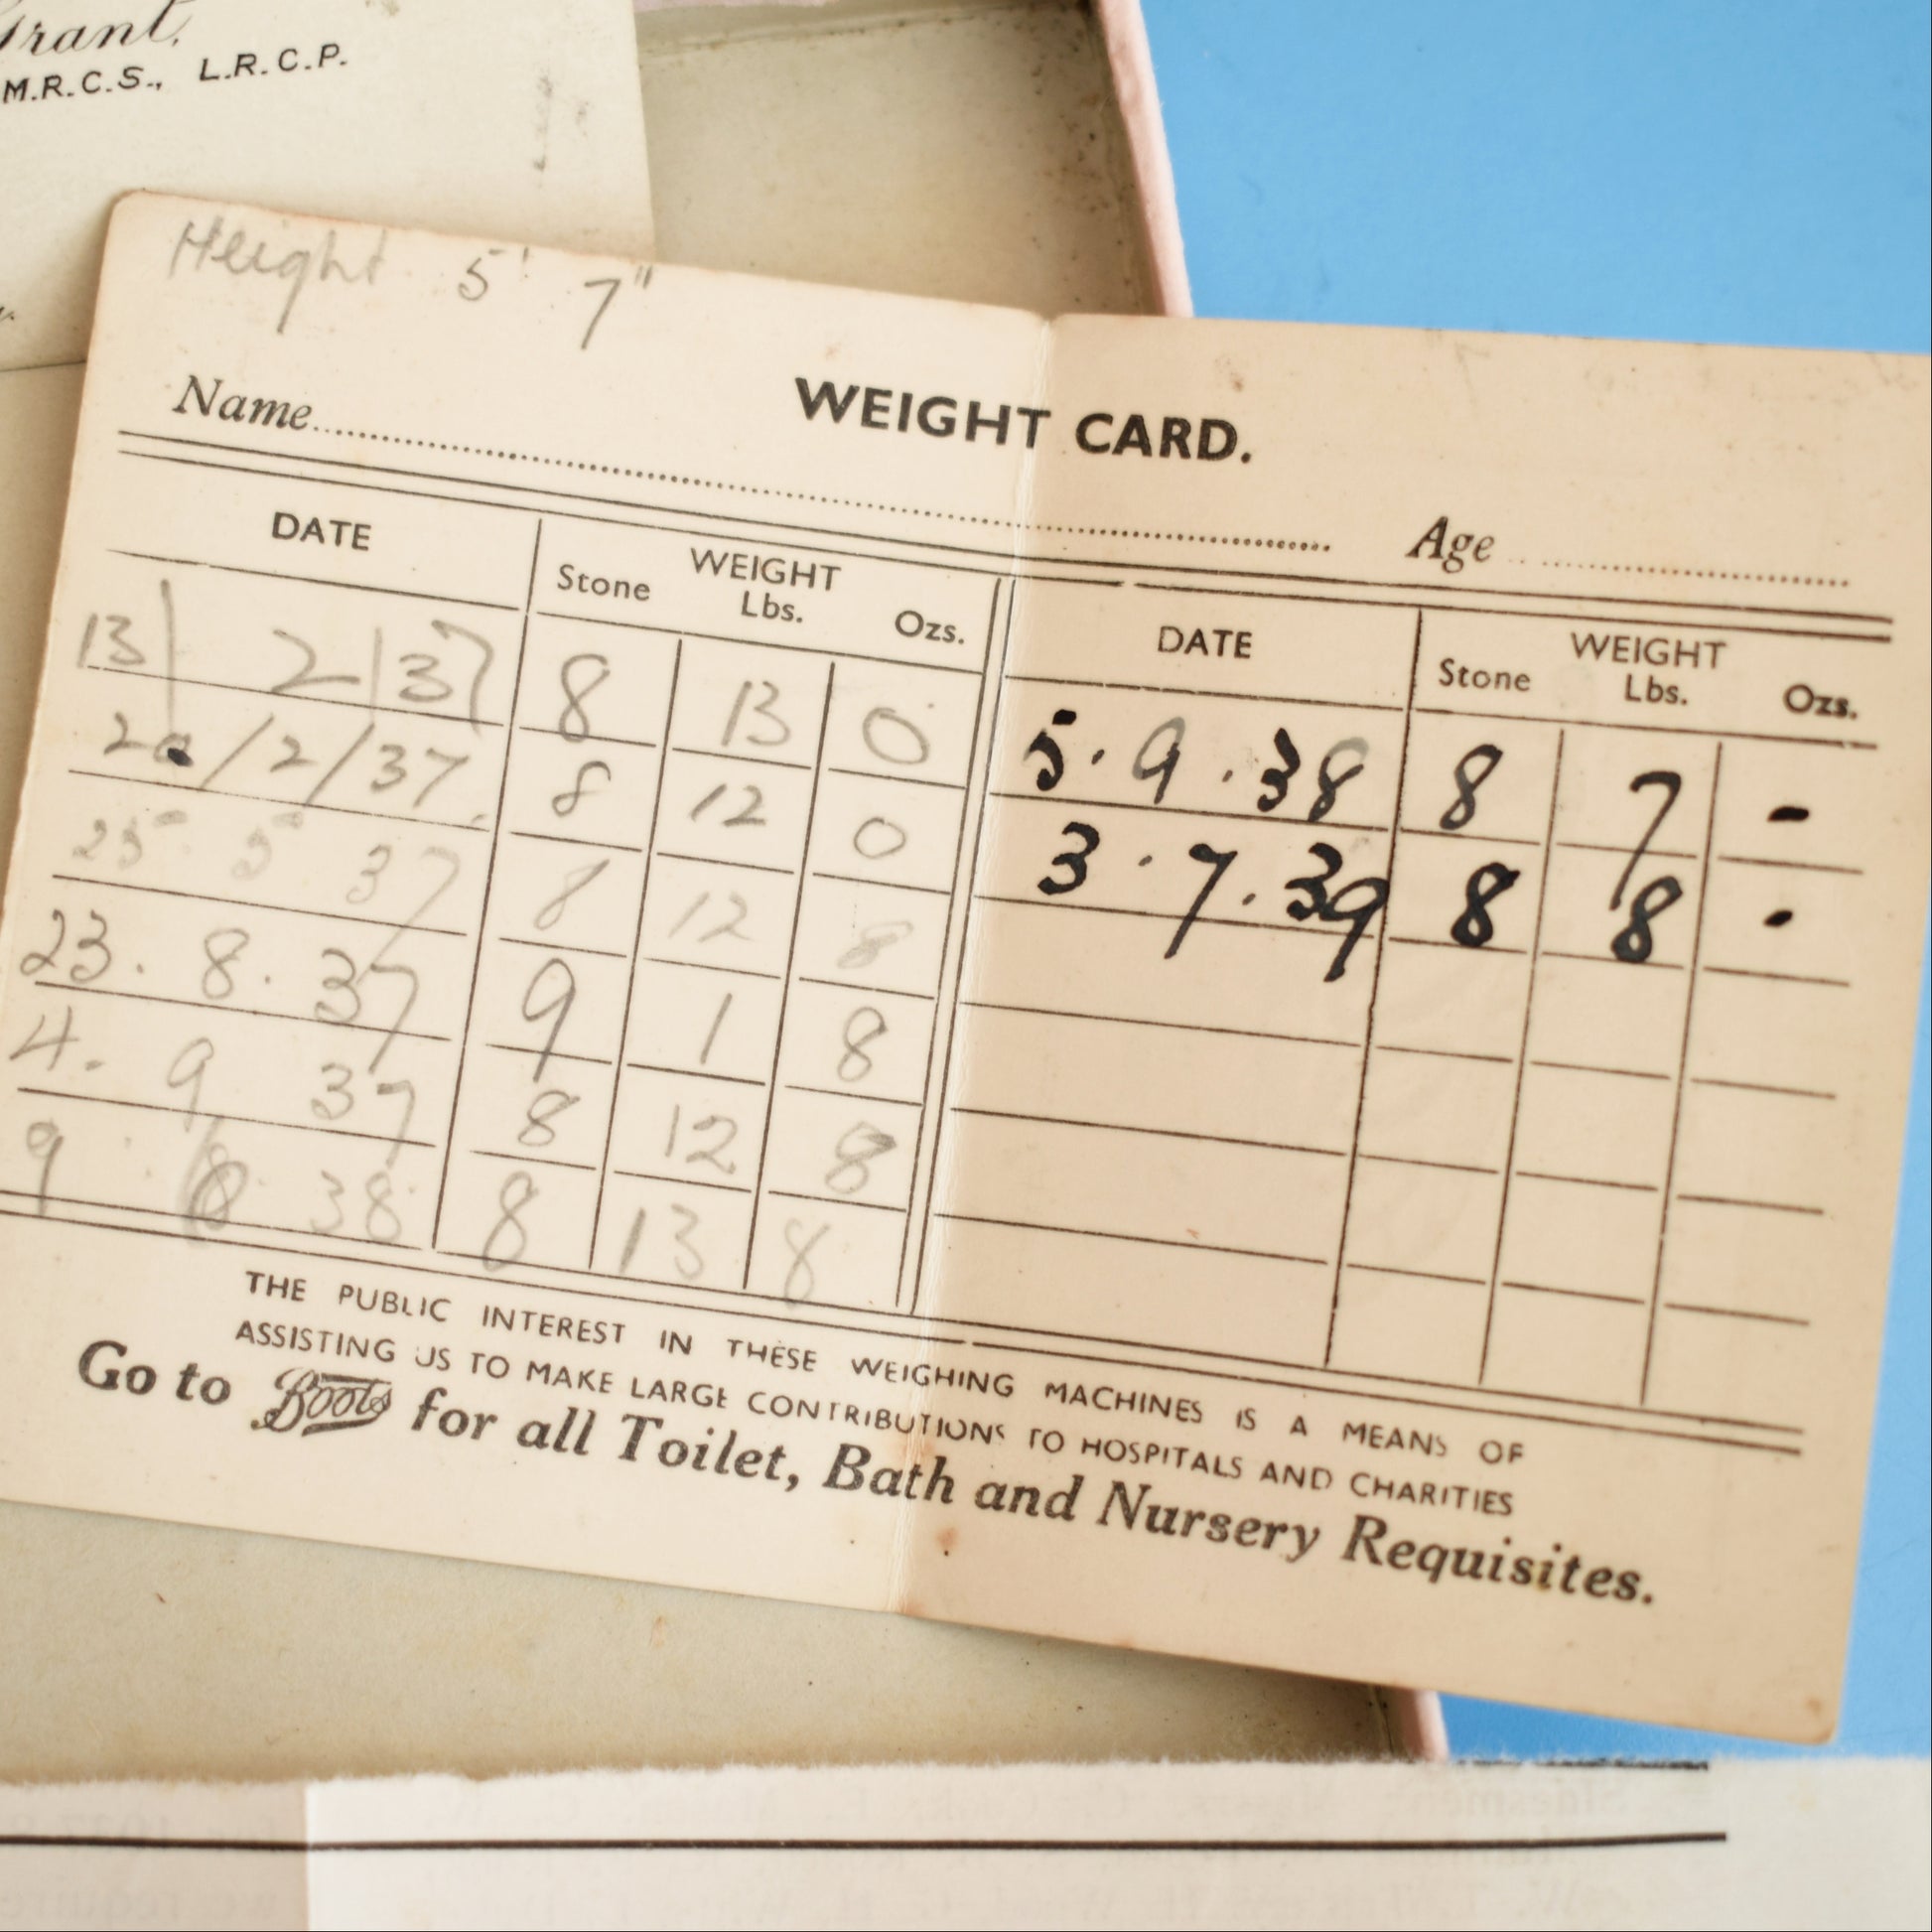 Grant,
M.R.C.S., L.R.C.P.
Height 5' 7"
WEIGHT CARD.
Name
Age
DATE
WEIGHT
Stone Lbs. Ozs.
13/2/37 8 13 0
/2/37. 8 12 0
37 8 12 8
23. 8. 37 9 1 8
4. 9 37 8 12 8
9 38 8 13 8
DATE
WEIGHT
Stone Lbs. Ozs.
5.9.38 8 7 -
3.7.39 8 8 -
THE PUBLIC INTEREST IN THESE WEIGHING MACHINES IS A MEANS OF
ASSISTING US TO MAKE LARGE CONTRIBUTIONS TO HOSPITALS AND CHARITIES
Go to Boots for all Toilet, Bath and Nursery Requisites.